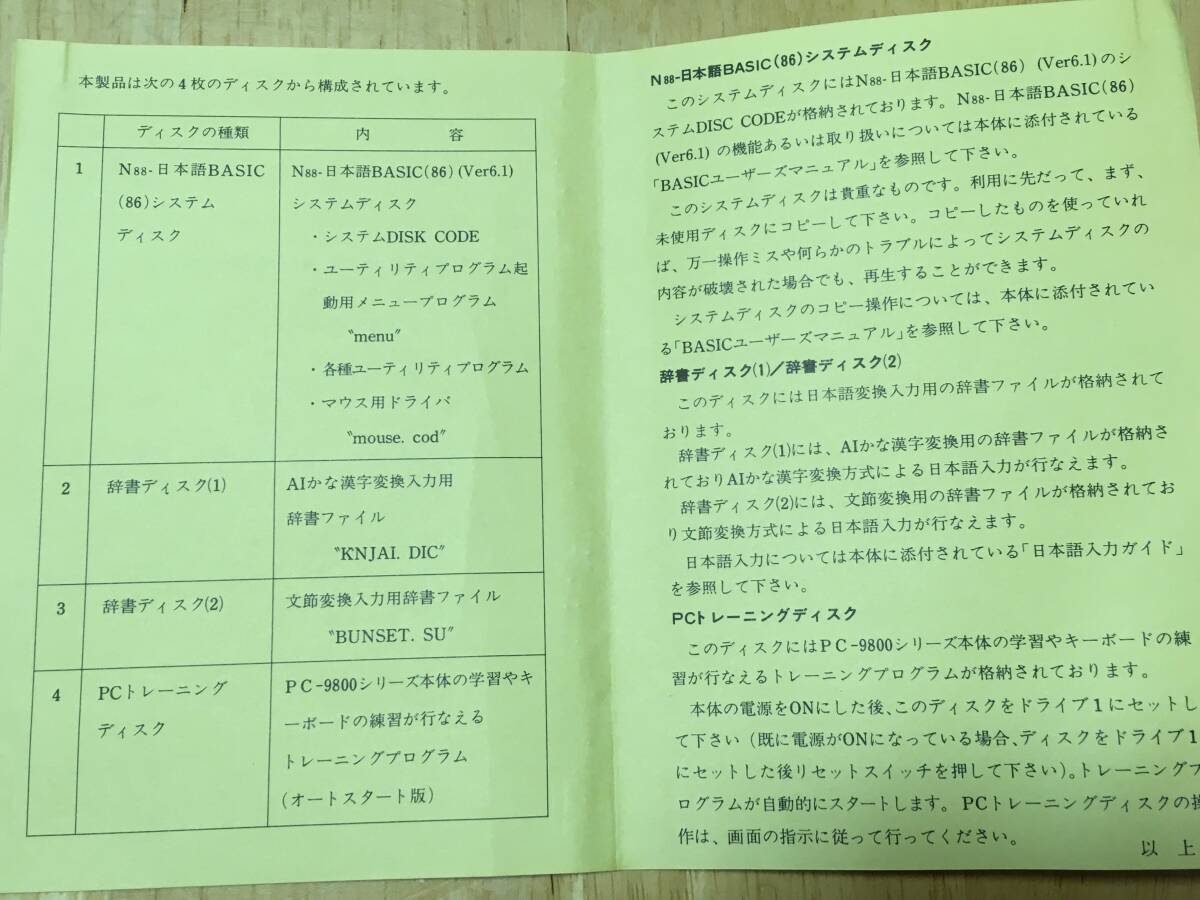 本製品は次の4枚のディスクから構成されています。
ディスクの種類 内容
1 N88-日本語BASIC N88-日本語BASIC(86)(Ver6.1)
(86)システム システムディスク
ディスク ・システムDISK CODE
・ユーティリティプログラム起
動用メニュープログラム
〝menu〞
・各種ユーティリティプログラム
・マウス用ドライバ
〝mouse. cod〞
2 辞書ディスク(1) AIかな漢字変換入力用
辞書ファイル
〝KNJAI. DIC〞
3 辞書ディスク(2) 文節変換入力用辞書ファイル
〝BUNSET. SU〞
4 PCトレーニング PC-9800シリーズ本体の学習やキ
ディスク ーボードの練習が行なえる
トレーニングプログラム
(オートスタート版)
N88-日本語BASIC(86)システムディスク
このシステムディスクにはN88-日本語BASIC(86) (Ver6.1)のシ
ステムDISC CODEが格納されております。N88-日本語BASIC(86)
(Ver6.1)の機能あるいは取り扱いについては本体に添付されている
「BASICユーザーズマニュアル」を参照して下さい。
このシステムディスクは貴重なものです。利用に先だって、まず、
未使用ディスクにコピーして下さい。コピーしたものを使っていれ
ば、万一操作ミスや何らかのトラブルによってシステムディスクの
内容が破壊された場合でも、再生することができます。
システムディスクのコピー操作については、本体に添付されてい
る「BASICユーザーズマニュアル」を参照して下さい。
辞書ディスク(1)/辞書ディスク(2)
このディスクには日本語変換入力用の辞書ファイルが格納されて
おります。
辞書ディスク(1)には、AIかな漢字変換用の辞書ファイルが格納さ
れておりAIかな漢字変換方式による日本語入力が行なえます。
辞書ディスク(2)には、文節変換用の辞書ファイルが格納されてお
り文節変換方式による日本語入力が行なえます。
日本語入力については本体に添付されている「日本語入力ガイド」
を参照して下さい。
PCトレーニングディスク
このディスクにはPC-9800シリーズ本体の学習やキーボードの練
習が行なえるトレーニングプログラムが格納されております。
本体の電源をONにした後、このディスクをドライブ1にセットし
て下さい(既に電源がONになっている場合、ディスクをドライブ1
にセットした後リセットスイッチを押して下さい)。トレーニングプ
ログラムが自動的にスタートします。PCトレーニングディスクの操
作は、画面の指示に従って行ってください。
以上